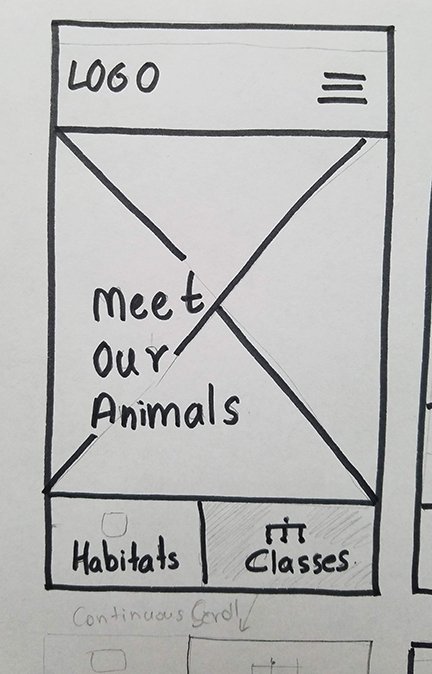 LOGO
meet
our
Animals
Habitats
Classes
Continuous Scroll